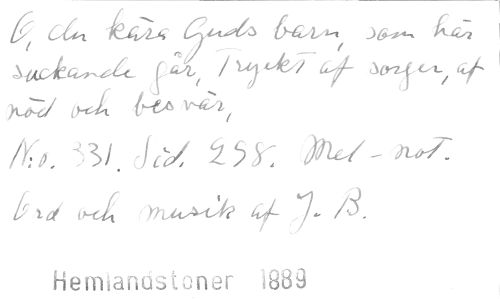 O, du kära Guds barn, som här
suckande går, Tryckt af sorger, af
nöd och besvär,
N:o. 331. Sid. 298. Mel-not.
Ord och musik af J. B.
Hemlandstoner 1889